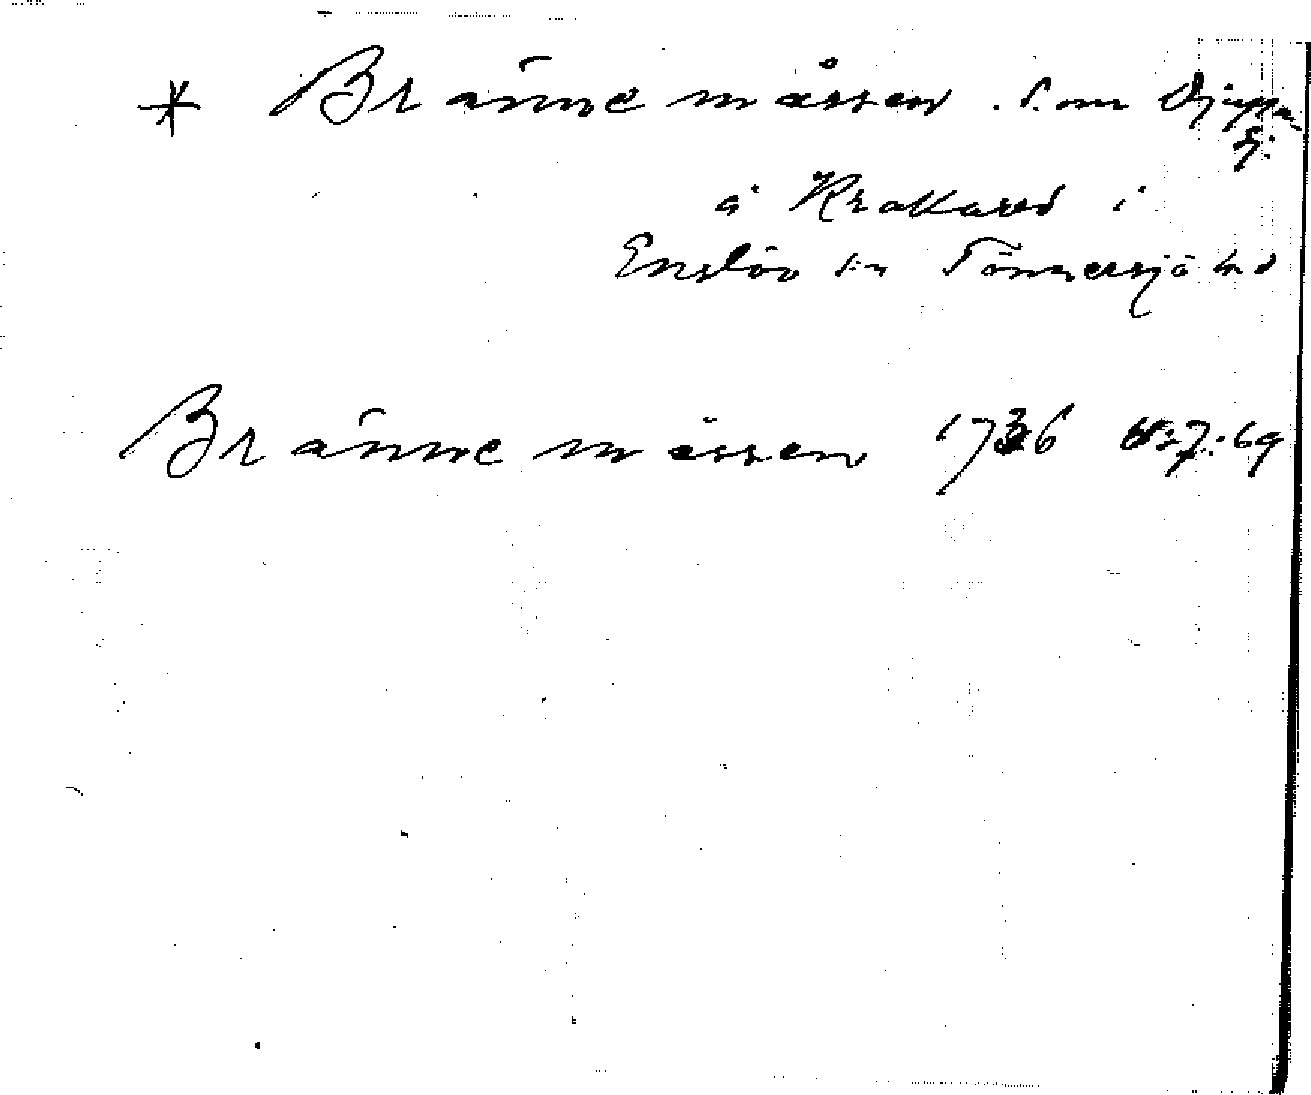 * Bränne måssen. Som
å Krakared i
Enslöv sn Tönnersjö hd
Bränne måssen 1736 :69